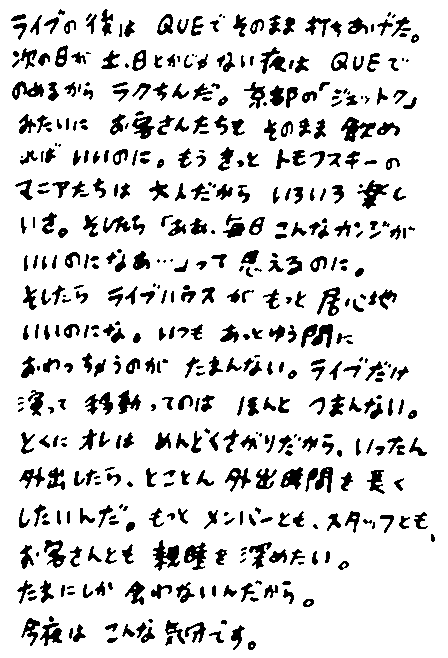 ライブの後は QUEでそのまま打ちあげた。
次の日が土、日とかじゃない夜は QUEで
のめるからラクちんだ。京都の「ジェットク」
みたいに お客さんたちも そのまま 飲め
れば いいのに。もう きっと トモフスキーの
マニアたちは 大人だから いろいろ 楽し
いさ。そしたら「ああ、毎日 こんなカンジが
いいのになあ…」って 思えるのに。
そしたら ライブハウス が もっと 居心地
いいのにな。いつも あっとゆう間に
おわっちゃうのが たまんない。ライブだけ
演って 移動ってのは ほんと つまんない。
とくに オレは めんどくさがりだから、いったん
外出したら、とことん 外出時間を 長く
したいんだ。もっと メンバーとも、スタッフとも、
お客さんとも 親睦を 深めたい。
たまにしか 会わないんだから。
今夜は こんな気分です。